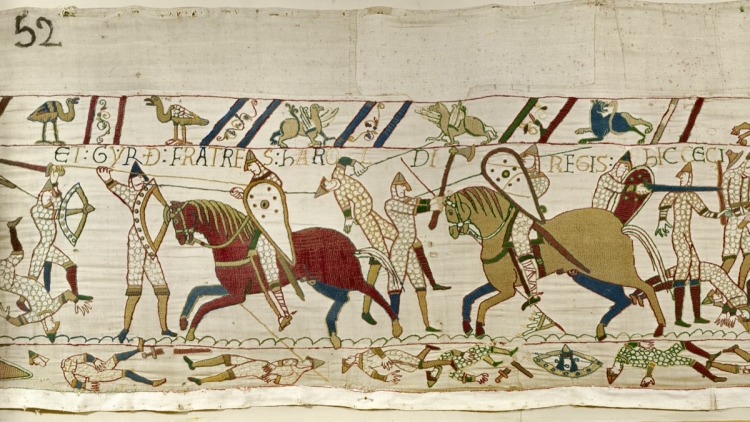 52
ET: GVRÐ: FRATRES: hARO DI REGIS: hIC CECI